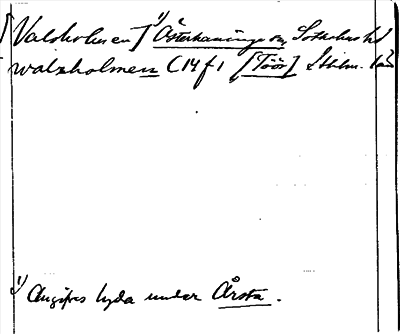 [Valsholmen] 1) Österhaninge sn, Sotholms hd
walxholmen C14 f 1 [Töör] Sthlm. län
1) Angifves lyda under Årsta.